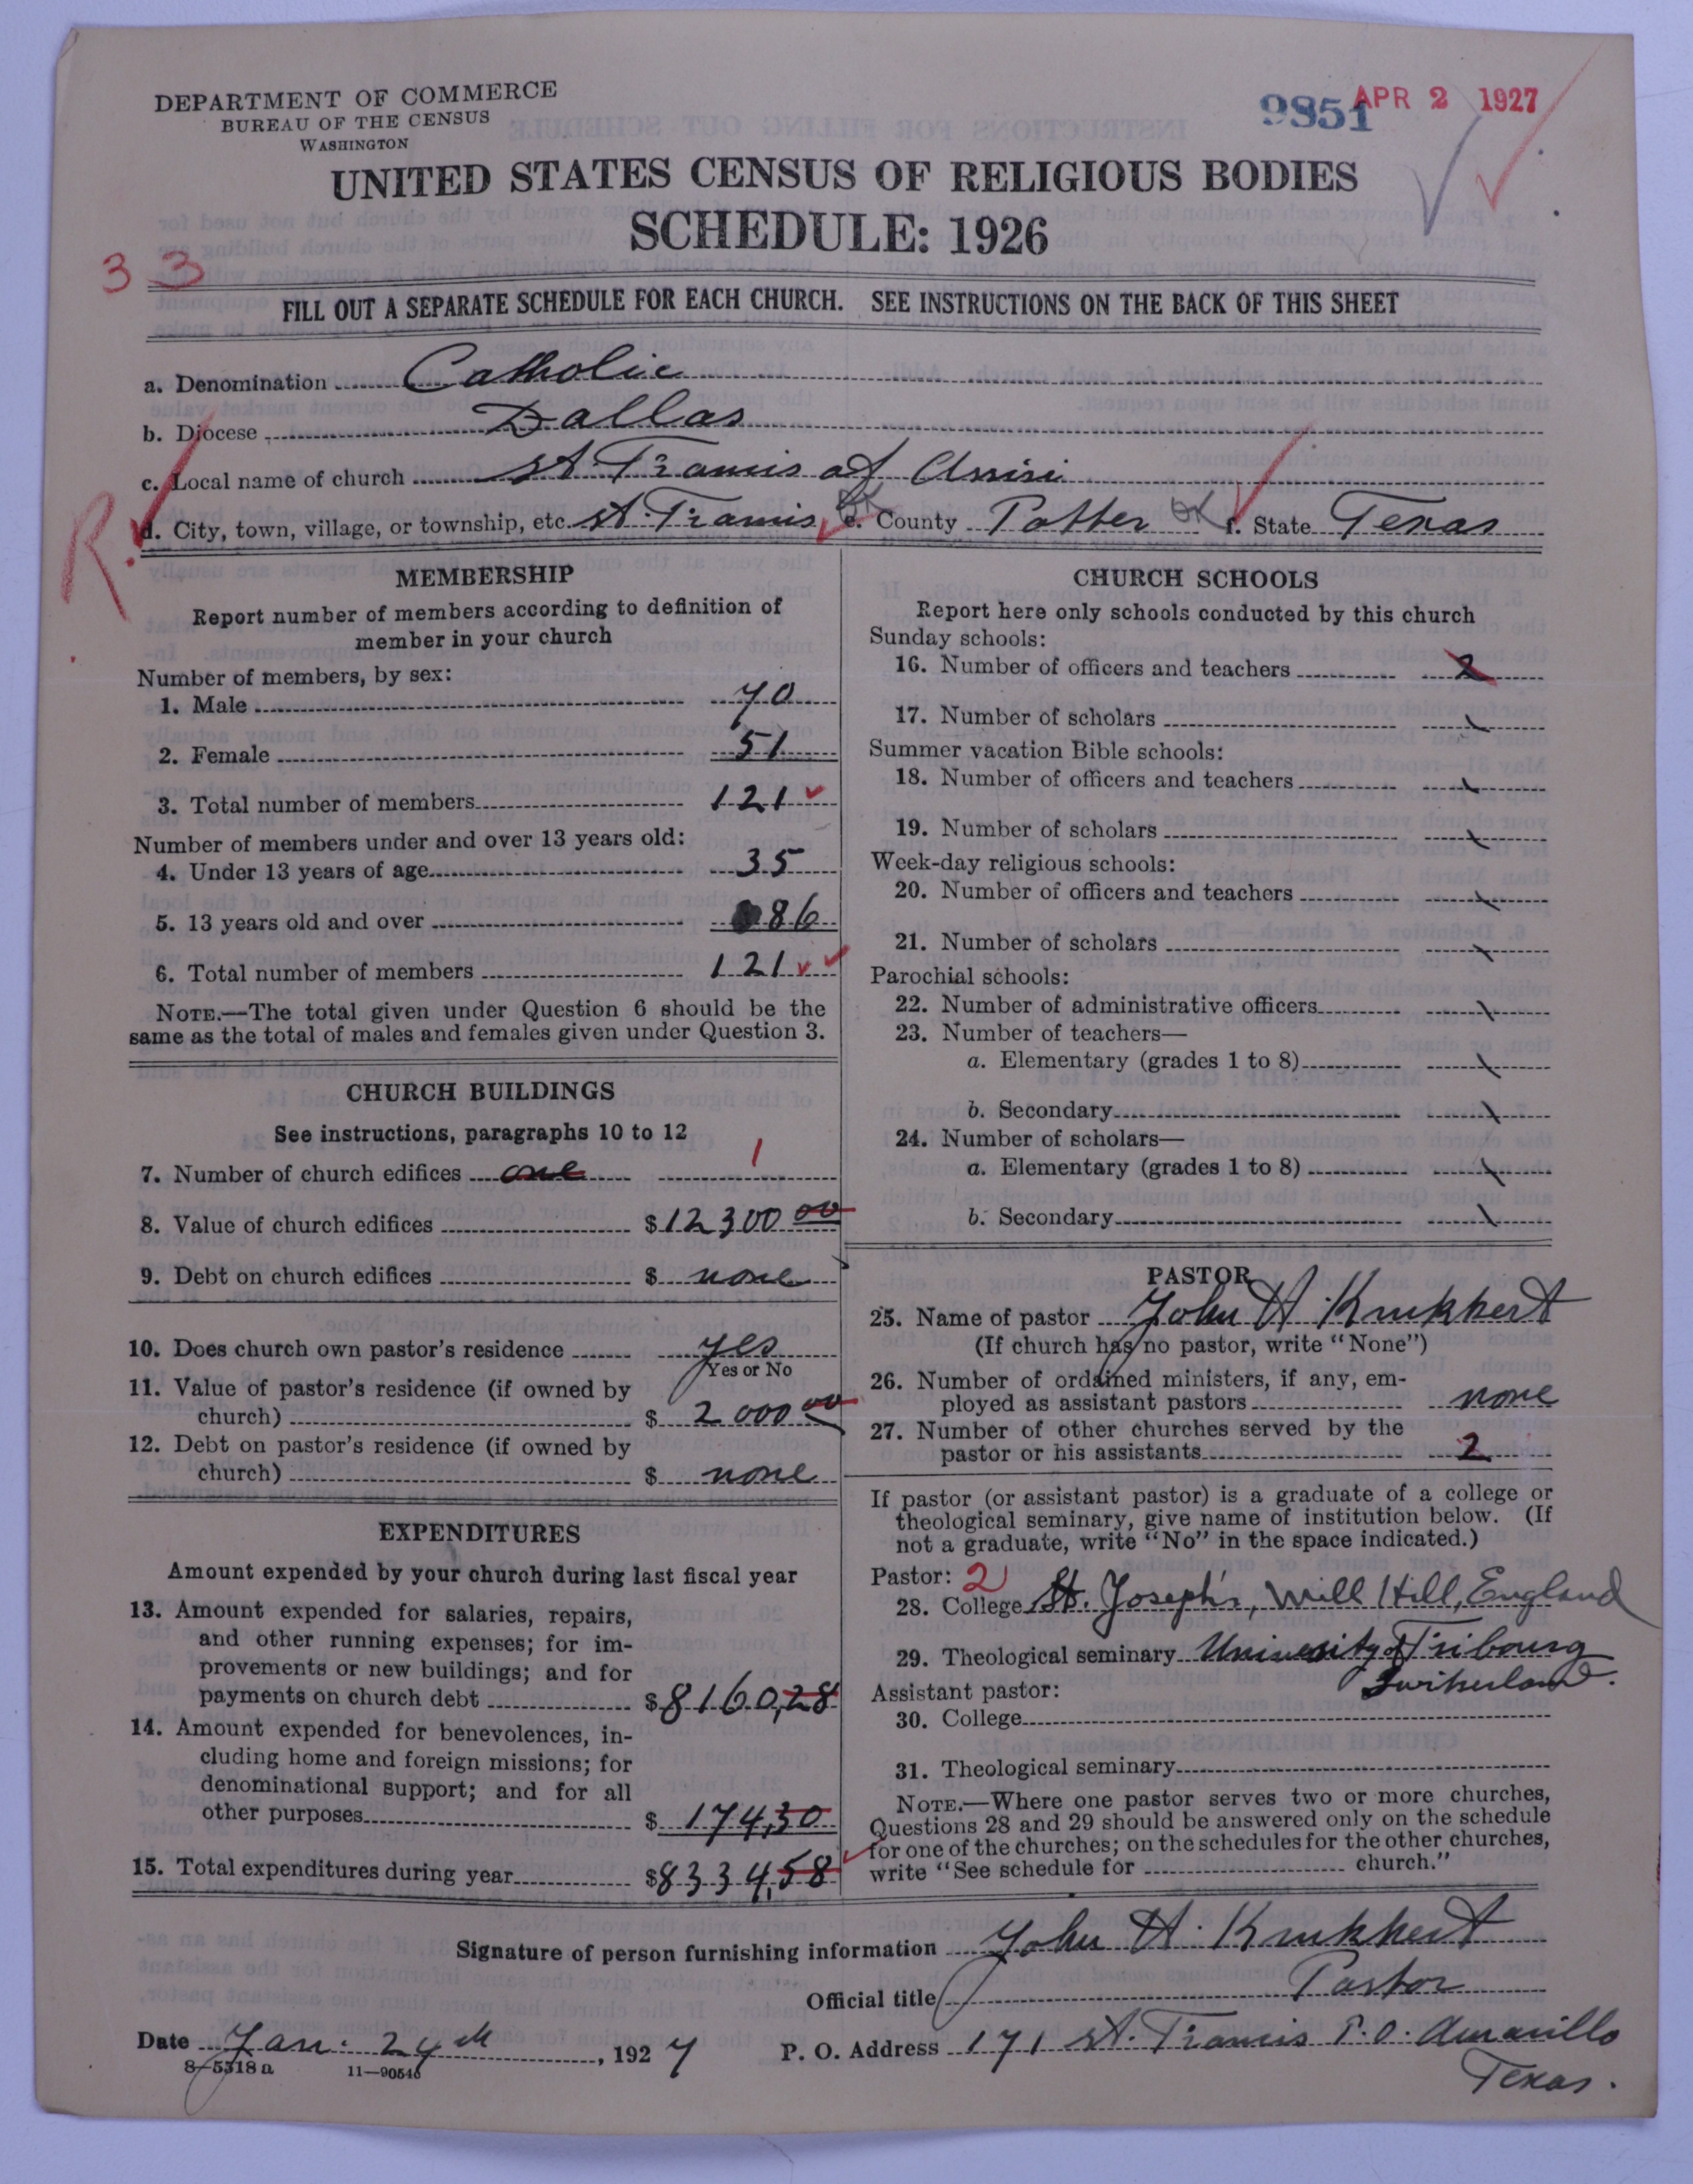 DEPARTMENT OF COMMERCE
BUREAU OF THE CENSUS
WASHINGTON
9851 APR 2 1927
UNITED STATES CENSUS OF RELIGIOUS BODIES
SCHEDULE: 1926
33
FILL OUT A SEPARATE SCHEDULE FOR EACH CHURCH. SEE INSTRUCTIONS ON THE BACK OF THIS SHEET
a. Denomination Catholic
b. Diocese Dallas
c. Local name of church St. Francis of Assisi
R.
d. City, town, village, or township, etc. St. Francis OK e. County Potter OK f. State Texas
MEMBERSHIP
Report number of members according to definition of
member in your church
Number of members, by sex:
1. Male 70
2. Female 51
3. Total number of members 121
Number of members under and over 13 years old:
4. Under 13 years of age 35
5. 13 years old and over 86
6. Total number of members 121
NOTE.—The total given under Question 6 should be the
same as the total of males and females given under Question 3.
CHURCH BUILDINGS
See instructions, paragraphs 10 to 12
7. Number of church edifices one 1
8. Value of church edifices $ 12300 00
9. Debt on church edifices $ none
10. Does church own pastor's residence yes
Yes or No
11. Value of pastor's residence (if owned by
church) $ 2000 00
12. Debt on pastor's residence (if owned by
church) $ none
EXPENDITURES
Amount expended by your church during last fiscal year
13. Amount expended for salaries, repairs,
and other running expenses; for im-
provements or new buildings; and for
payments on church debt $ 8160,28
14. Amount expended for benevolences, in-
cluding home and foreign missions; for
denominational support; and for all
other purposes $ 174,30
15. Total expenditures during year $ 8334,58
CHURCH SCHOOLS
Report here only schools conducted by this church
Sunday schools:
16. Number of officers and teachers 2
17. Number of scholars
Summer vacation Bible schools:
18. Number of officers and teachers
19. Number of scholars
Week-day religious schools:
20. Number of officers and teachers
21. Number of scholars
Parochial schools:
22. Number of administrative officers
23. Number of teachers—
a. Elementary (grades 1 to 8)
b. Secondary
24. Number of scholars—
a. Elementary (grades 1 to 8)
b. Secondary
PASTOR
25. Name of pastor John H. Krukkert
(If church has no pastor, write "None")
26. Number of ordained ministers, if any, em-
ployed as assistant pastors none
27. Number of other churches served by the
pastor or his assistants 2
If pastor (or assistant pastor) is a graduate of a college or
theological seminary, give name of institution below. (If
not a graduate, write "No" in the space indicated.)
Pastor: 2
28. College St. Joseph's, Mill Hill, England
29. Theological seminary University of Fribourg
Switzerland.
Assistant pastor:
30. College
31. Theological seminary
NOTE.—Where one pastor serves two or more churches,
Questions 28 and 29 should be answered only on the schedule
for one of the churches; on the schedules for the other churches,
write "See schedule for church."
Signature of person furnishing information John H. Krukkert
Official title Pastor
Date Jan. 24th, 1927 P. O. Address 171 St. Francis P.O. Amarillo
Texas.
8-5318a 11-90546